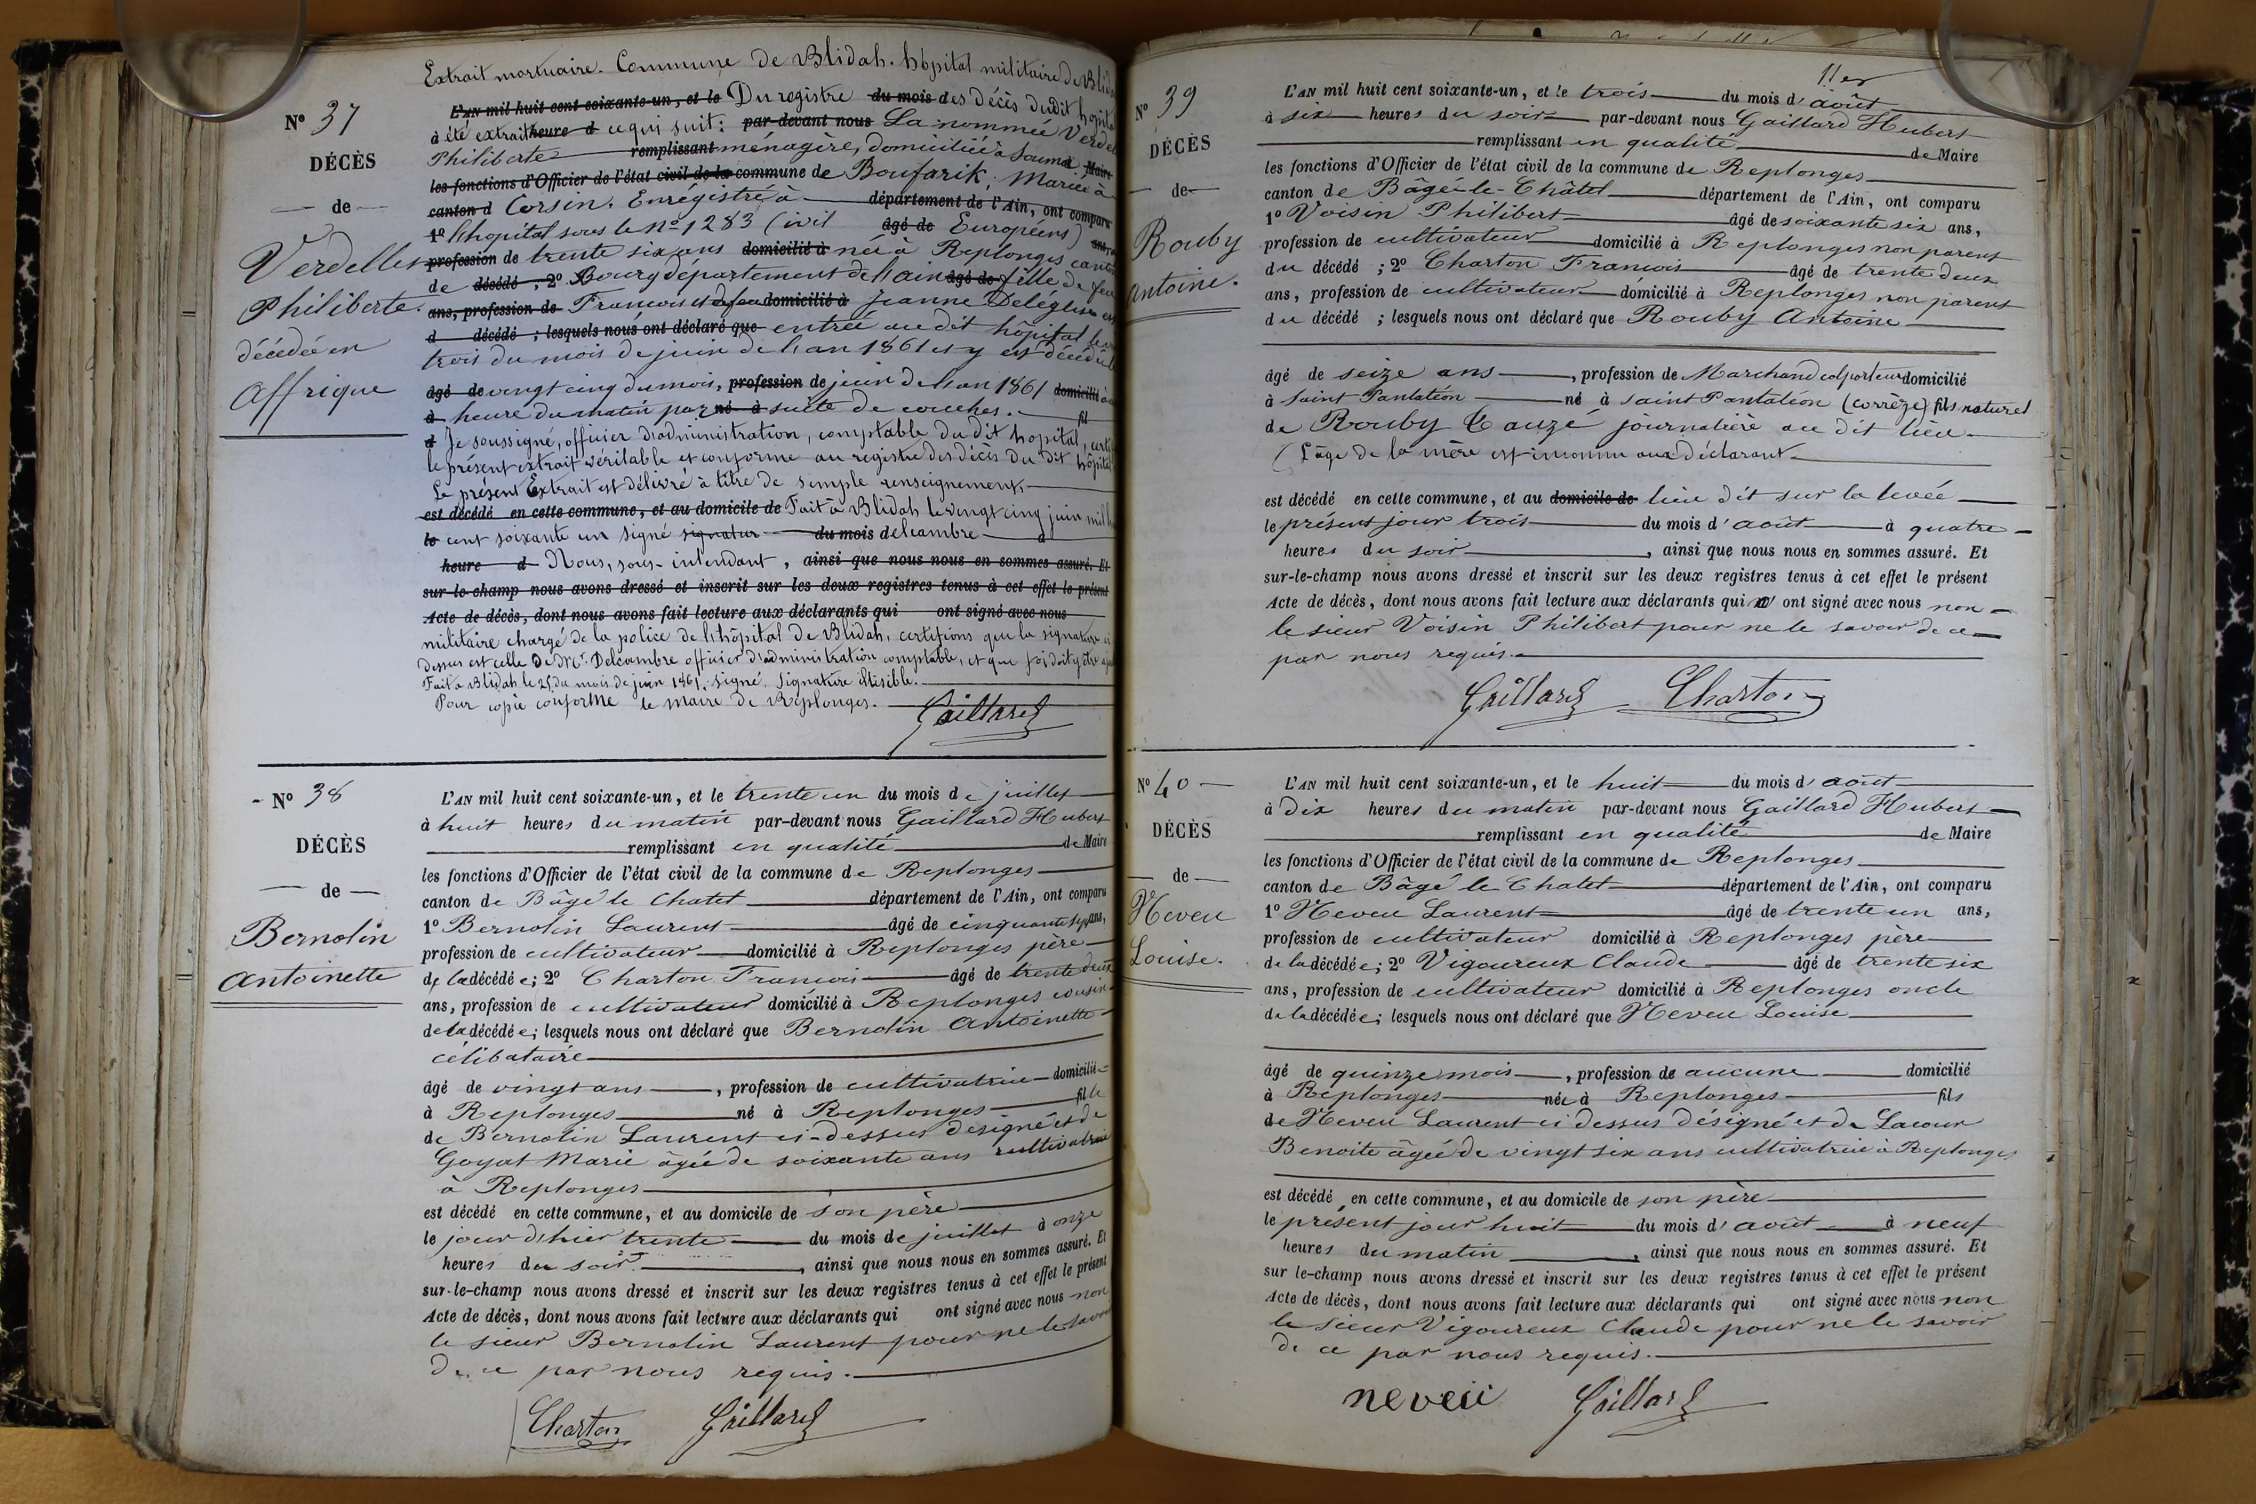 Extrait mortuaire. Commune de Blidah. hôpital militaire de
N° 37
DÉCÈS
de
Verdelles
Philiberte.
décédée en
Affrique
L'AN mil huit cent soixante-un, et le Du registre du mois des décès dudit
à été extrait heure d ce qui suit: par-devant nous La nommée
Philiberte remplissant ménagère, domiciliée à Soumà Maire
les fonctions d'Officier de l'état civil de la commune de Boufarik, Mariée à
canton d Corsin. Enrégistré à département de l'Ain, ont comparu
1° l'hopital sous le N° 1283 (civil âgé de Européens)
profession de trente six ans domicilié à née à Replonges
de décédé ; 2° Bourg département de l'ain âgé de fille de feu
ans, profession de François et de feu domicilié à Jeanne
d décédé ; lesquels nous ont déclaré que entrée au dit hôpital le
trois du mois de juin de l'an 1861 et y est
âgé de vingt cinq du mois, profession de juin de l'an 1861 domicilié
à heure du matin par né à suite de couches. fil
d Je soussigné, officier d'administration, comptable du dit hopital,
le présent extrait véritable et conforme au registre des décès du dit
Le présent Extrait est délivré à titre de simple renseignement
est décédé en cette commune, et au domicile de Fait à Blidah le vingt cinq juin
le cent soixante un signé signatur du mois delcambre à
heure d Nous, sous-intendant, ainsi que nous nous en sommes assuré. Et
sur-le-champ nous avons dressé et inscrit sur les deux registres tenus à cet effet le présent
Acte de décès, dont nous avons fait lecture aux déclarants qui ont signé avec nous
militaire chargé de la police de l'hôpital de Blidah, certifions que la signature
dessus est celle de Mr. Delcambre officier d'administration comptable, et que foi doit y être
Fait à Blidah le 25 du mois de juin 1861. signé. Signature illisible.
Pour copie conforme le maire de Replonges.
Gaillard
N° 38
DÉCÈS
de
Bernolin
Antoinette
L'AN mil huit cent soixante-un, et le trente un du mois de juillet
à huit heures du matin par-devant nous Gaillard Hubert
remplissant en qualité de Maire
les fonctions d'Officier de l'état civil de la commune de Replonges
canton de Bâgé le Chatel département de l'Ain, ont comparu
1° Bernolin Laurent âgé de cinquante sept ans,
profession de cultivateur domicilié à Replonges père
de la décédée; 2° Charton François âgé de trente deux
ans, profession de cultivateur domicilié à Replonges cousin
de la décédée; lesquels nous ont déclaré que Bernolin Antoinette
célibataire
âgé de vingt ans, profession de cultivatrice domicilié
à Replonges né à Replonges fille
de Bernolin Laurent ci-dessus désigné et de
Goyat Marie âgée de soixante ans cultivatrice
à Replonges
est décédé en cette commune, et au domicile de son père
le jour d'hier trente du mois de juillet à onze
heures du soir, ainsi que nous nous en sommes assuré. Et
sur-le-champ nous avons dressé et inscrit sur les deux registres tenus à cet effet le présent
Acte de décès, dont nous avons fait lecture aux déclarants qui ont signé avec nous non
le sieur Bernolin Laurent pour ne le savoir
de ce par nous requis.
Charton Gaillard
N° 39
DÉCÈS
de
Rouby
Antoine.
L'AN mil huit cent soixante-un, et le trois du mois d'août
à six heures du soir par-devant nous Gaillard Hubert
remplissant en qualité de Maire
les fonctions d'Officier de l'état civil de la commune de Replonges
canton de Bâgé-le-Châtel département de l'Ain, ont comparu
1° Voisin Philibert âgé de soixante six ans,
profession de cultivateur domicilié à Replonges non parent
du décédé ; 2° Charton François âgé de trente deux
ans, profession de cultivateur domicilié à Replonges non parent
du décédé ; lesquels nous ont déclaré que Rouby Antoine
âgé de seize ans, profession de Marchand colporteur domicilié
à Saint Pantaléon né à saint Pantaléon (corrèze) fils naturel
de Rouby Tauzé journalière au dit lieu
(L'âge de la mère est inconnu aux déclarant
est décédé en cette commune, et au domicile de lieu dit sur la levée
le présent jour trois du mois d'août à quatre
heures du soir, ainsi que nous nous en sommes assuré. Et
sur-le-champ nous avons dressé et inscrit sur les deux registres tenus à cet effet le présent
Acte de décès, dont nous avons fait lecture aux déclarants qui ont signé avec nous non
le sieur Voisin Philibert pour ne le savoir de ce
par nous requis.
Gaillard Charton
N° 40
DÉCÈS
de
Neveu
Louise.
L'AN mil huit cent soixante-un, et le huit du mois d'août
à dix heures du matin par-devant nous Gaillard Hubert
remplissant en qualité de Maire
les fonctions d'Officier de l'état civil de la commune de Replonges
canton de Bâgé le Chatel département de l'Ain, ont comparu
1° Neveu Laurent âgé de trente un ans,
profession de cultivateur domicilié à Replonges père
de la décédée; 2° Vigoureux Claude âgé de trente six
ans, profession de cultivateur domicilié à Replonges oncle
de la décédée; lesquels nous ont déclaré que Neveu Louise
âgé de quinze mois, profession de aucune domicilié
à Replonges née à Replonges fils
de Neveu Laurent ci dessus désigné et de Lacour
Benoite âgée de vingt six ans cultivatrice à Replonges
est décédé en cette commune, et au domicile de son père
le présent jour huit du mois d'août à neuf
heures du matin, ainsi que nous nous en sommes assuré. Et
sur le-champ nous avons dressé et inscrit sur les deux registres tenus à cet effet le présent
Acte de décès, dont nous avons fait lecture aux déclarants qui ont signé avec nous non
le sieur Vigoureux Claude pour ne le savoir
de ce par nous requis.
neveu Gaillard